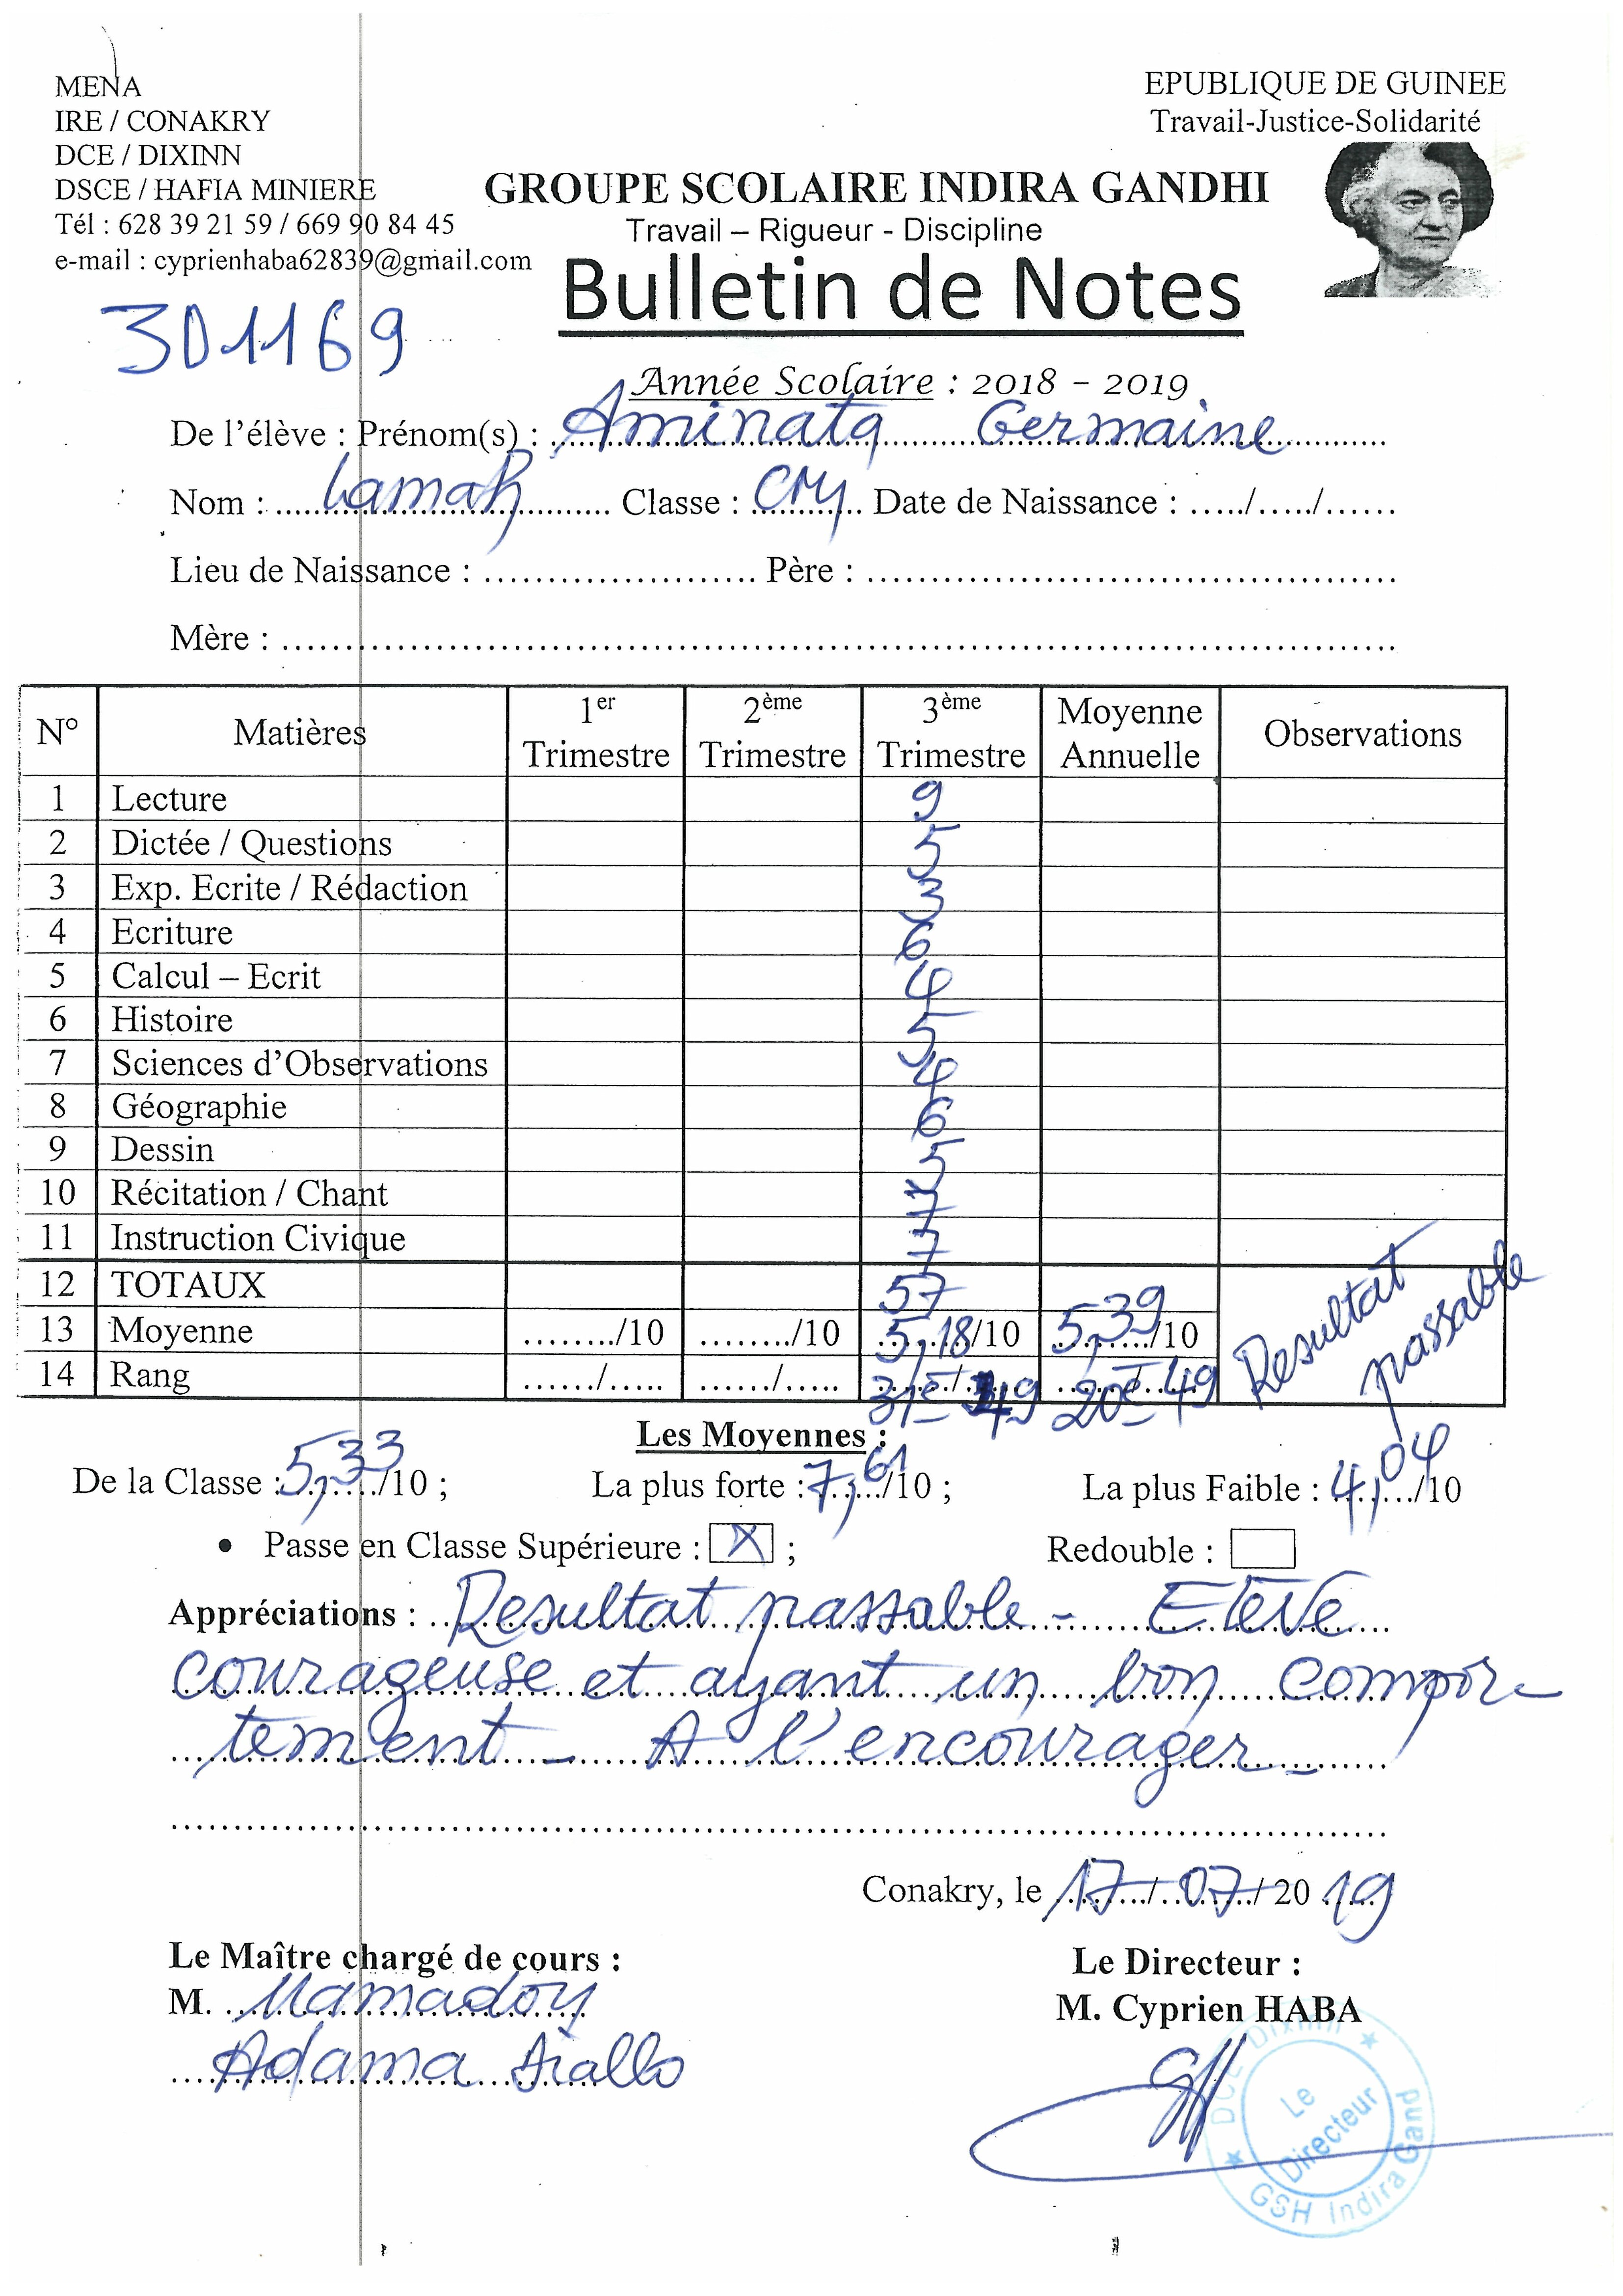 MENA
IRE / CONAKRY
DCE / DIXINN
DSCE / HAFIA MINIERE
Tél : 628 39 21 59 / 669 90 84 45
e-mail : cyprienhaba62839@gmail.com
EPUBLIQUE DE GUINEE
Travail-Justice-Solidarité
GROUPE SCOLAIRE INDIRA GANDHI
Travail – Rigueur - Discipline
Bulletin de Notes
301169
Année Scolaire : 2018 - 2019
De l'élève : Prénom(s) : Aminata Germaine
Nom : Lamah Classe : CM1 Date de Naissance : ...../...../......
Lieu de Naissance : ...................... Père : ..........................................
Mère : ..........................................................................................
N° Matières 1er Trimestre 2ème Trimestre 3ème Trimestre Moyenne Annuelle Observations
1 Lecture 9
2 Dictée / Questions 5
3 Exp. Ecrite / Rédaction 3
4 Ecriture 6
5 Calcul – Ecrit 4
6 Histoire 5
7 Sciences d'Observations 4
8 Géographie 6
9 Dessin 5
10 Récitation / Chant
11 Instruction Civique 7
12 TOTAUX 57
13 Moyenne ......../10 ......../10 5,18/10 5,39/10
14 Rang ....../..... ....../..... 31è / 49 20è / 49
Resultat passable
Les Moyennes :
De la Classe : 5,33/10 ; La plus forte : 7,61/10 ; La plus Faible : 4,04/10
• Passe en Classe Supérieure : X ; Redouble :
Appréciations : Resultat passable - Elève
courageuse et ayant un bon compor-
tement - A l'encourager -
Conakry, le 17/07/2019
Le Maître chargé de cours :
M. Mamadou
Adama Diallo
Le Directeur :
M. Cyprien HABA
DCE Dixinn
Le Directeur
GSH Indira Gand